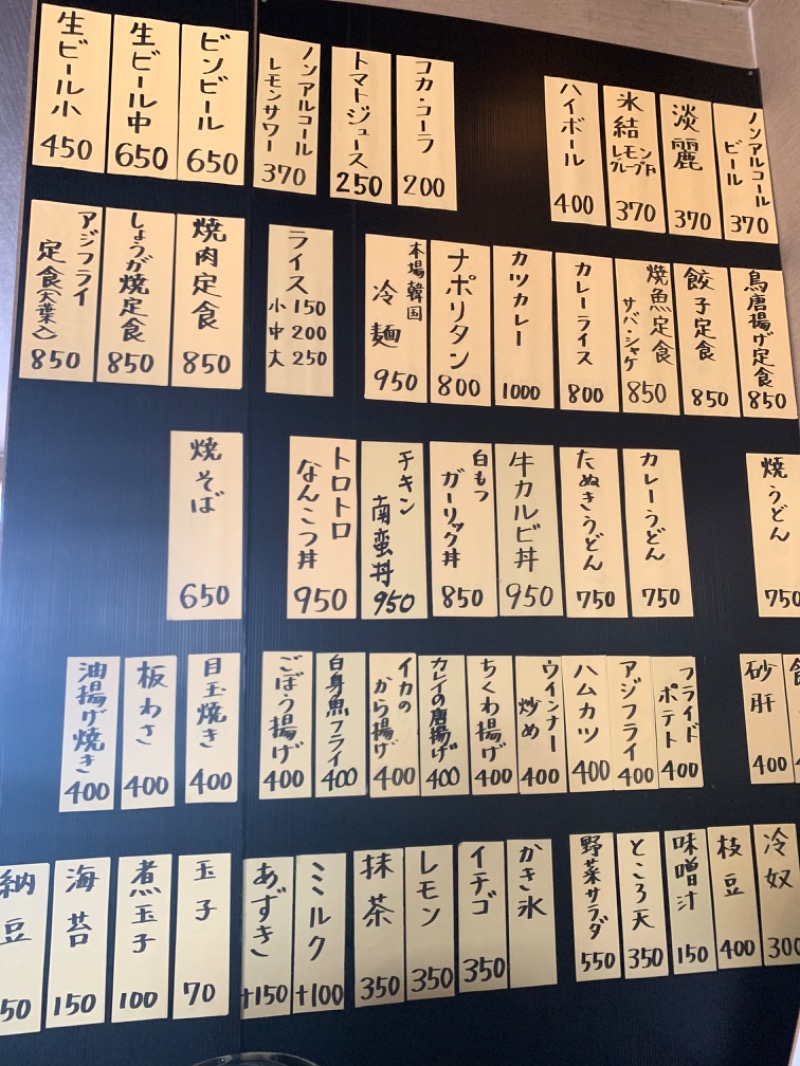 ノンアルコール
ビール
370
淡麗
370
氷結
レモン
グレープF
370
ハイボール
400
コカ・コーラ
200
トマトジュース
250
ノンアルコール
レモンサワー
370
ビンビール
650
生ビール中
650
生ビール小
450
鳥唐揚げ定食
850
餃子定食
850
焼魚定食
サバ・シャケ
850
カレーライス
800
カツカレー
1000
ナポリタン
800
本場韓国
冷麺
950
ライス
小 150
中 200
大 250
焼肉定食
850
しょうが焼定食
850
アジフライ
定食(大葉入)
850
焼うどん
750
カレーうどん
750
たぬきうどん
750
牛カルビ丼
950
白もつ
ガーリック丼
850
チキン
南蛮丼
950
トロトロ
なんこつ丼
950
焼そば
650
砂肝
400
フライド
ポテト
400
アジフライ
400
ハムカツ
400
ウインナー
炒め
400
ちくわ揚げ
400
カレイの唐揚げ
400
イカの
から揚げ
400
白身魚フライ
400
ごぼう揚げ
400
目玉焼き
400
板わさ
400
油揚げ焼き
400
冷奴
300
枝豆
400
味噌汁
150
ところ天
350
野菜サラダ
550
かき氷
イチゴ
350
レモン
350
抹茶
350
ミルク
+100
あずき
+150
玉子
70
煮玉子
100
海苔
150
納豆
50